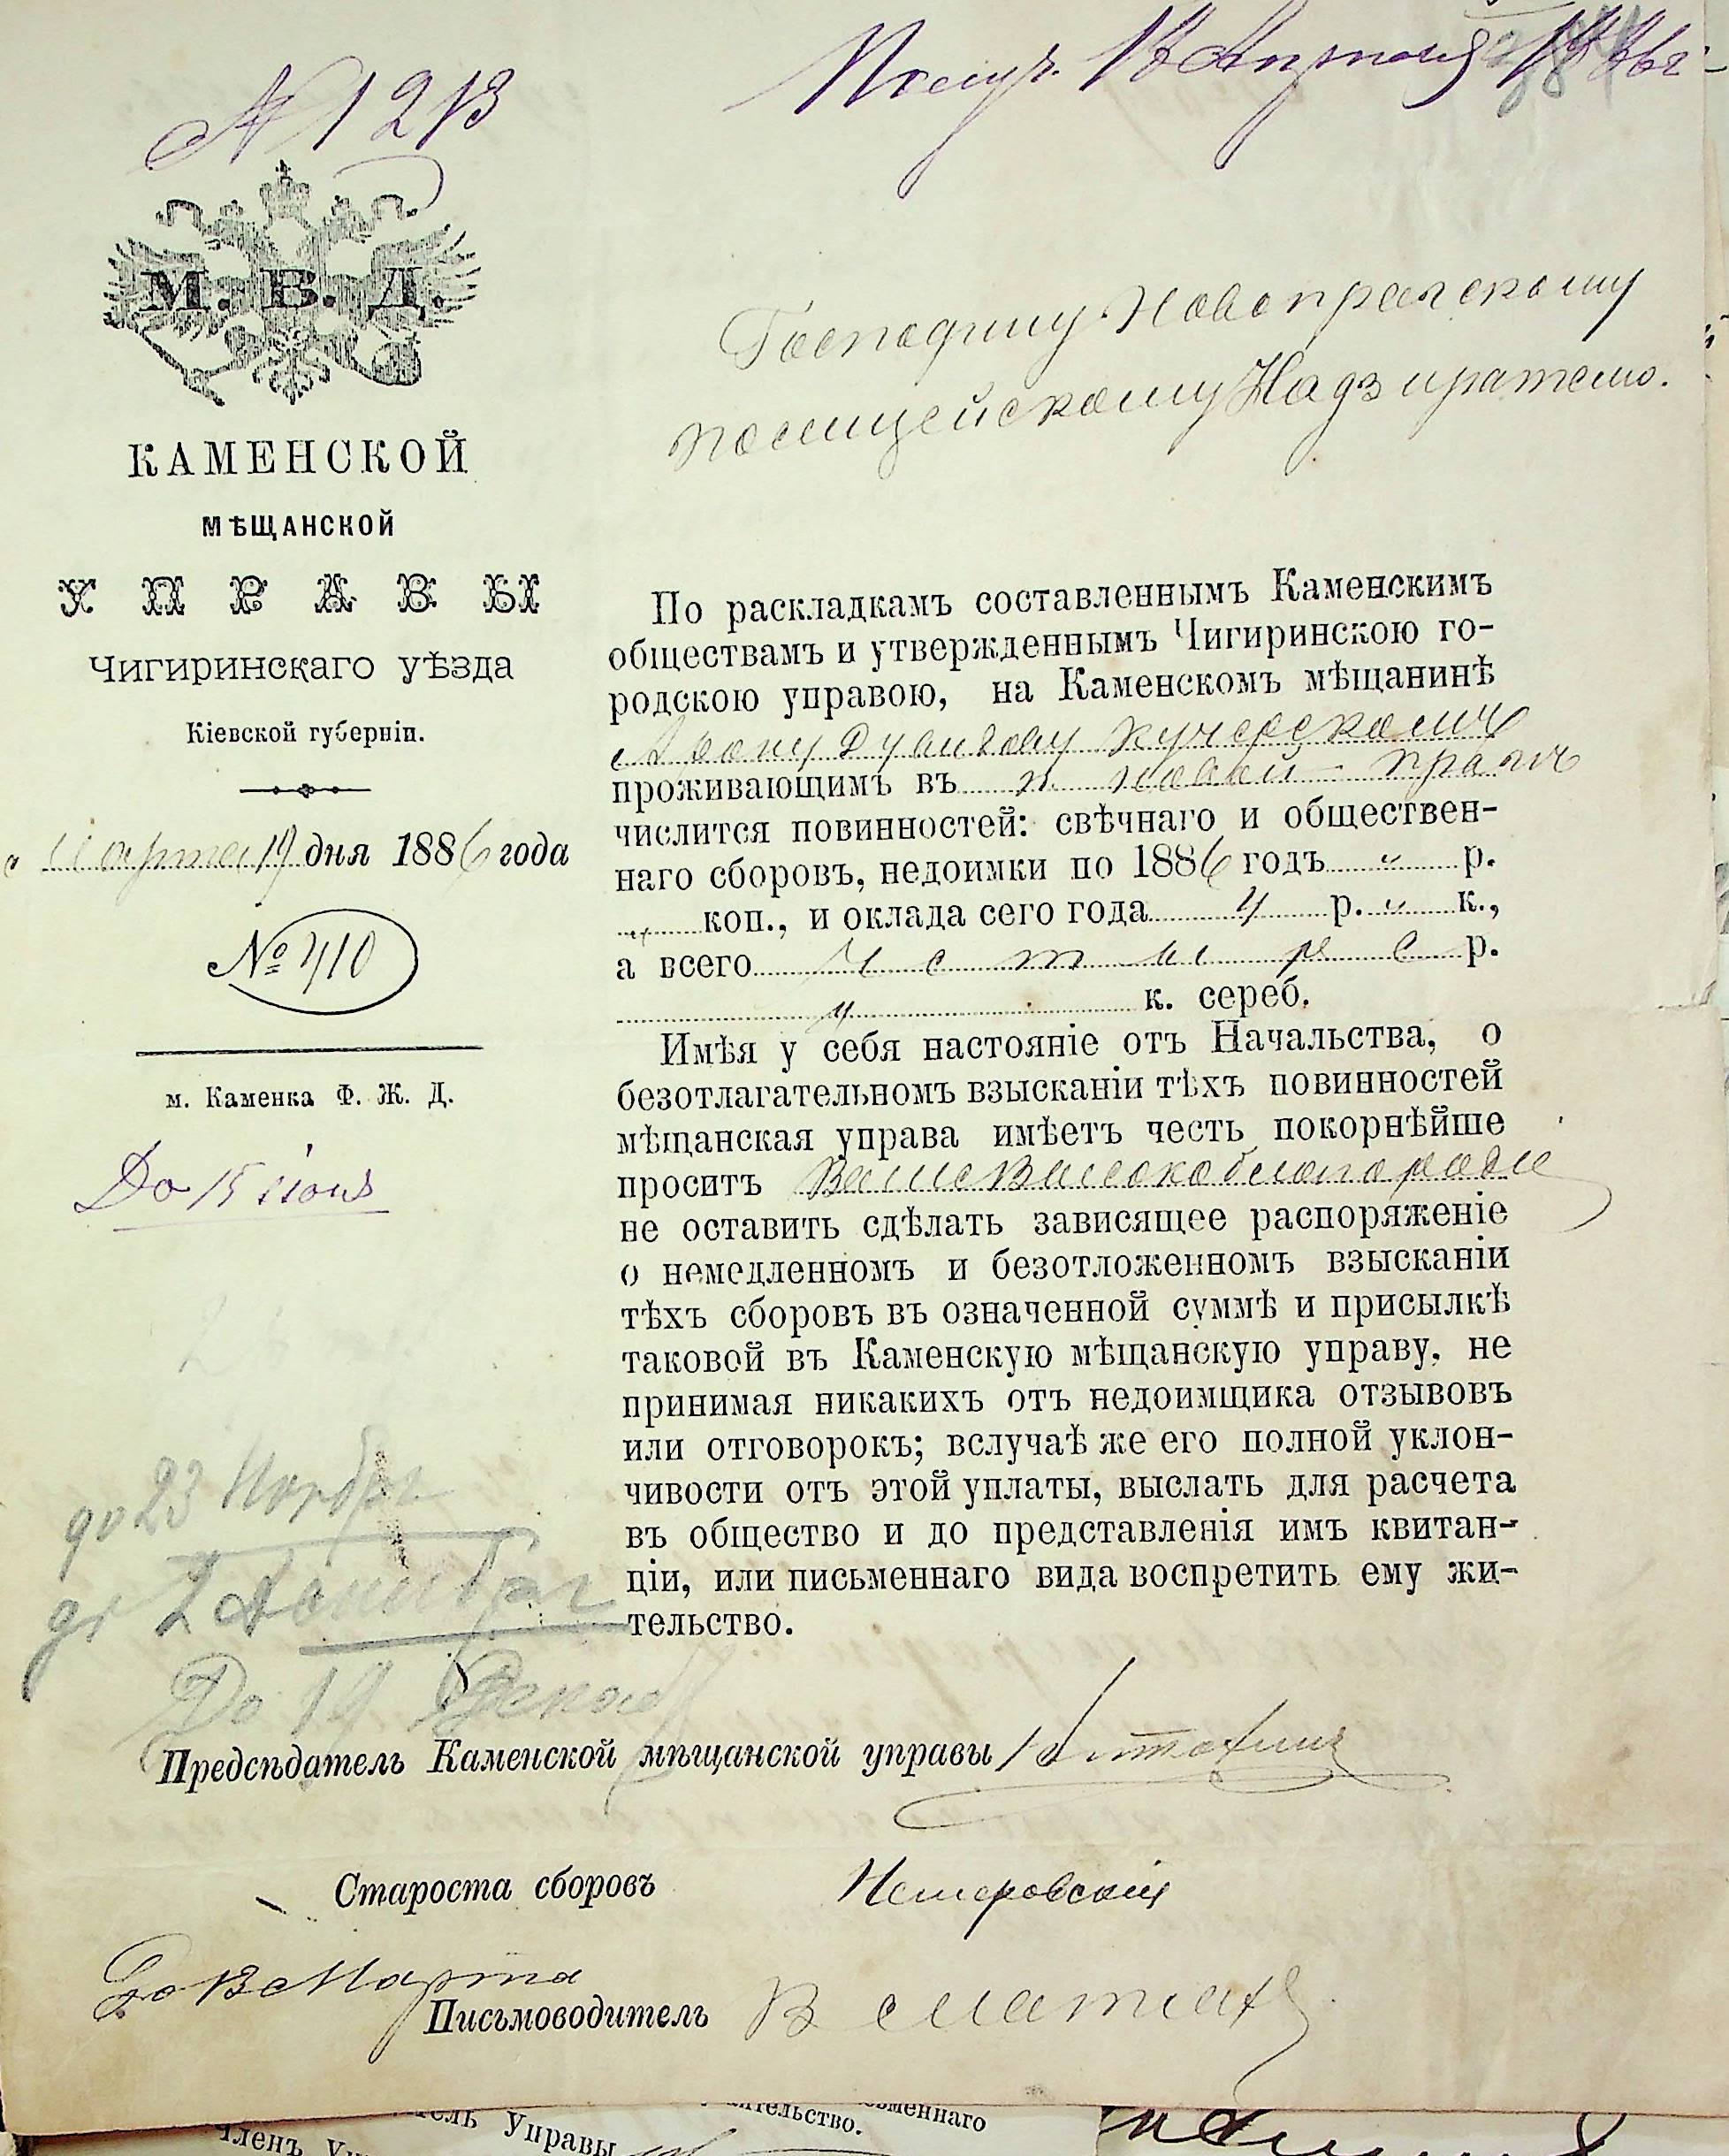 № 1213
Получ. 13 Апреля 1886 г
М. В. Д.
КАМЕНСКОЙ
МѢЩАНСКОЙ
УПРАВЫ
Чигиринскаго уѣзда
Кіевской губерніи.
Марта 19 дня 1886 года
№ 410
м. Каменка Ф. Ж. Д.
До 15 іюня
до 23 Ноября
до 2 Декабря
До 19 Декаб
Господину Новопражскому
полицейскому Надзирателю.
По раскладкамъ составленнымъ Каменскимъ
обществамъ и утвержденнымъ Чигиринскою го-
родскою управою, на Каменскомъ мѣщанинѣ
Арону Дувидову Кучерскому
проживающимъ въ п. Новой-Праги
числится повинностей: свѣчнаго и обществен-
наго сборовъ, недоимки по 1886 годъ " р.
" коп., и оклада сего года 4 р. " к.,
а всего четыре р.
" к. сереб.
Имѣя у себя настояніе отъ Начальства, о
безотлагательномъ взысканіи тѣхъ повинностей
мѣщанская управа имѣетъ честь покорнѣйше
проситъ Ваше Высокоблагородіе
не оставить сдѣлать зависящее распоряженіе
о немедленномъ и безотложенномъ взысканіи
тѣхъ сборовъ въ означенной суммѣ и присылкѣ
таковой въ Каменскую мѣщанскую управу, не
принимая никакихъ отъ недоимщика отзывовъ
или отговорокъ; вслучаѣ же его полной уклон-
чивости отъ этой уплаты, выслать для расчета
въ общество и до представленія имъ квитан-
ціи, или письменнаго вида воспретить ему жи-
тельство.
Предсѣдатель Каменской мѣщанской управы
Староста сборовъ Немировскій
До 13 Марта
Письмоводитель
членъ
тель Управы
ительство.
ьменнаго